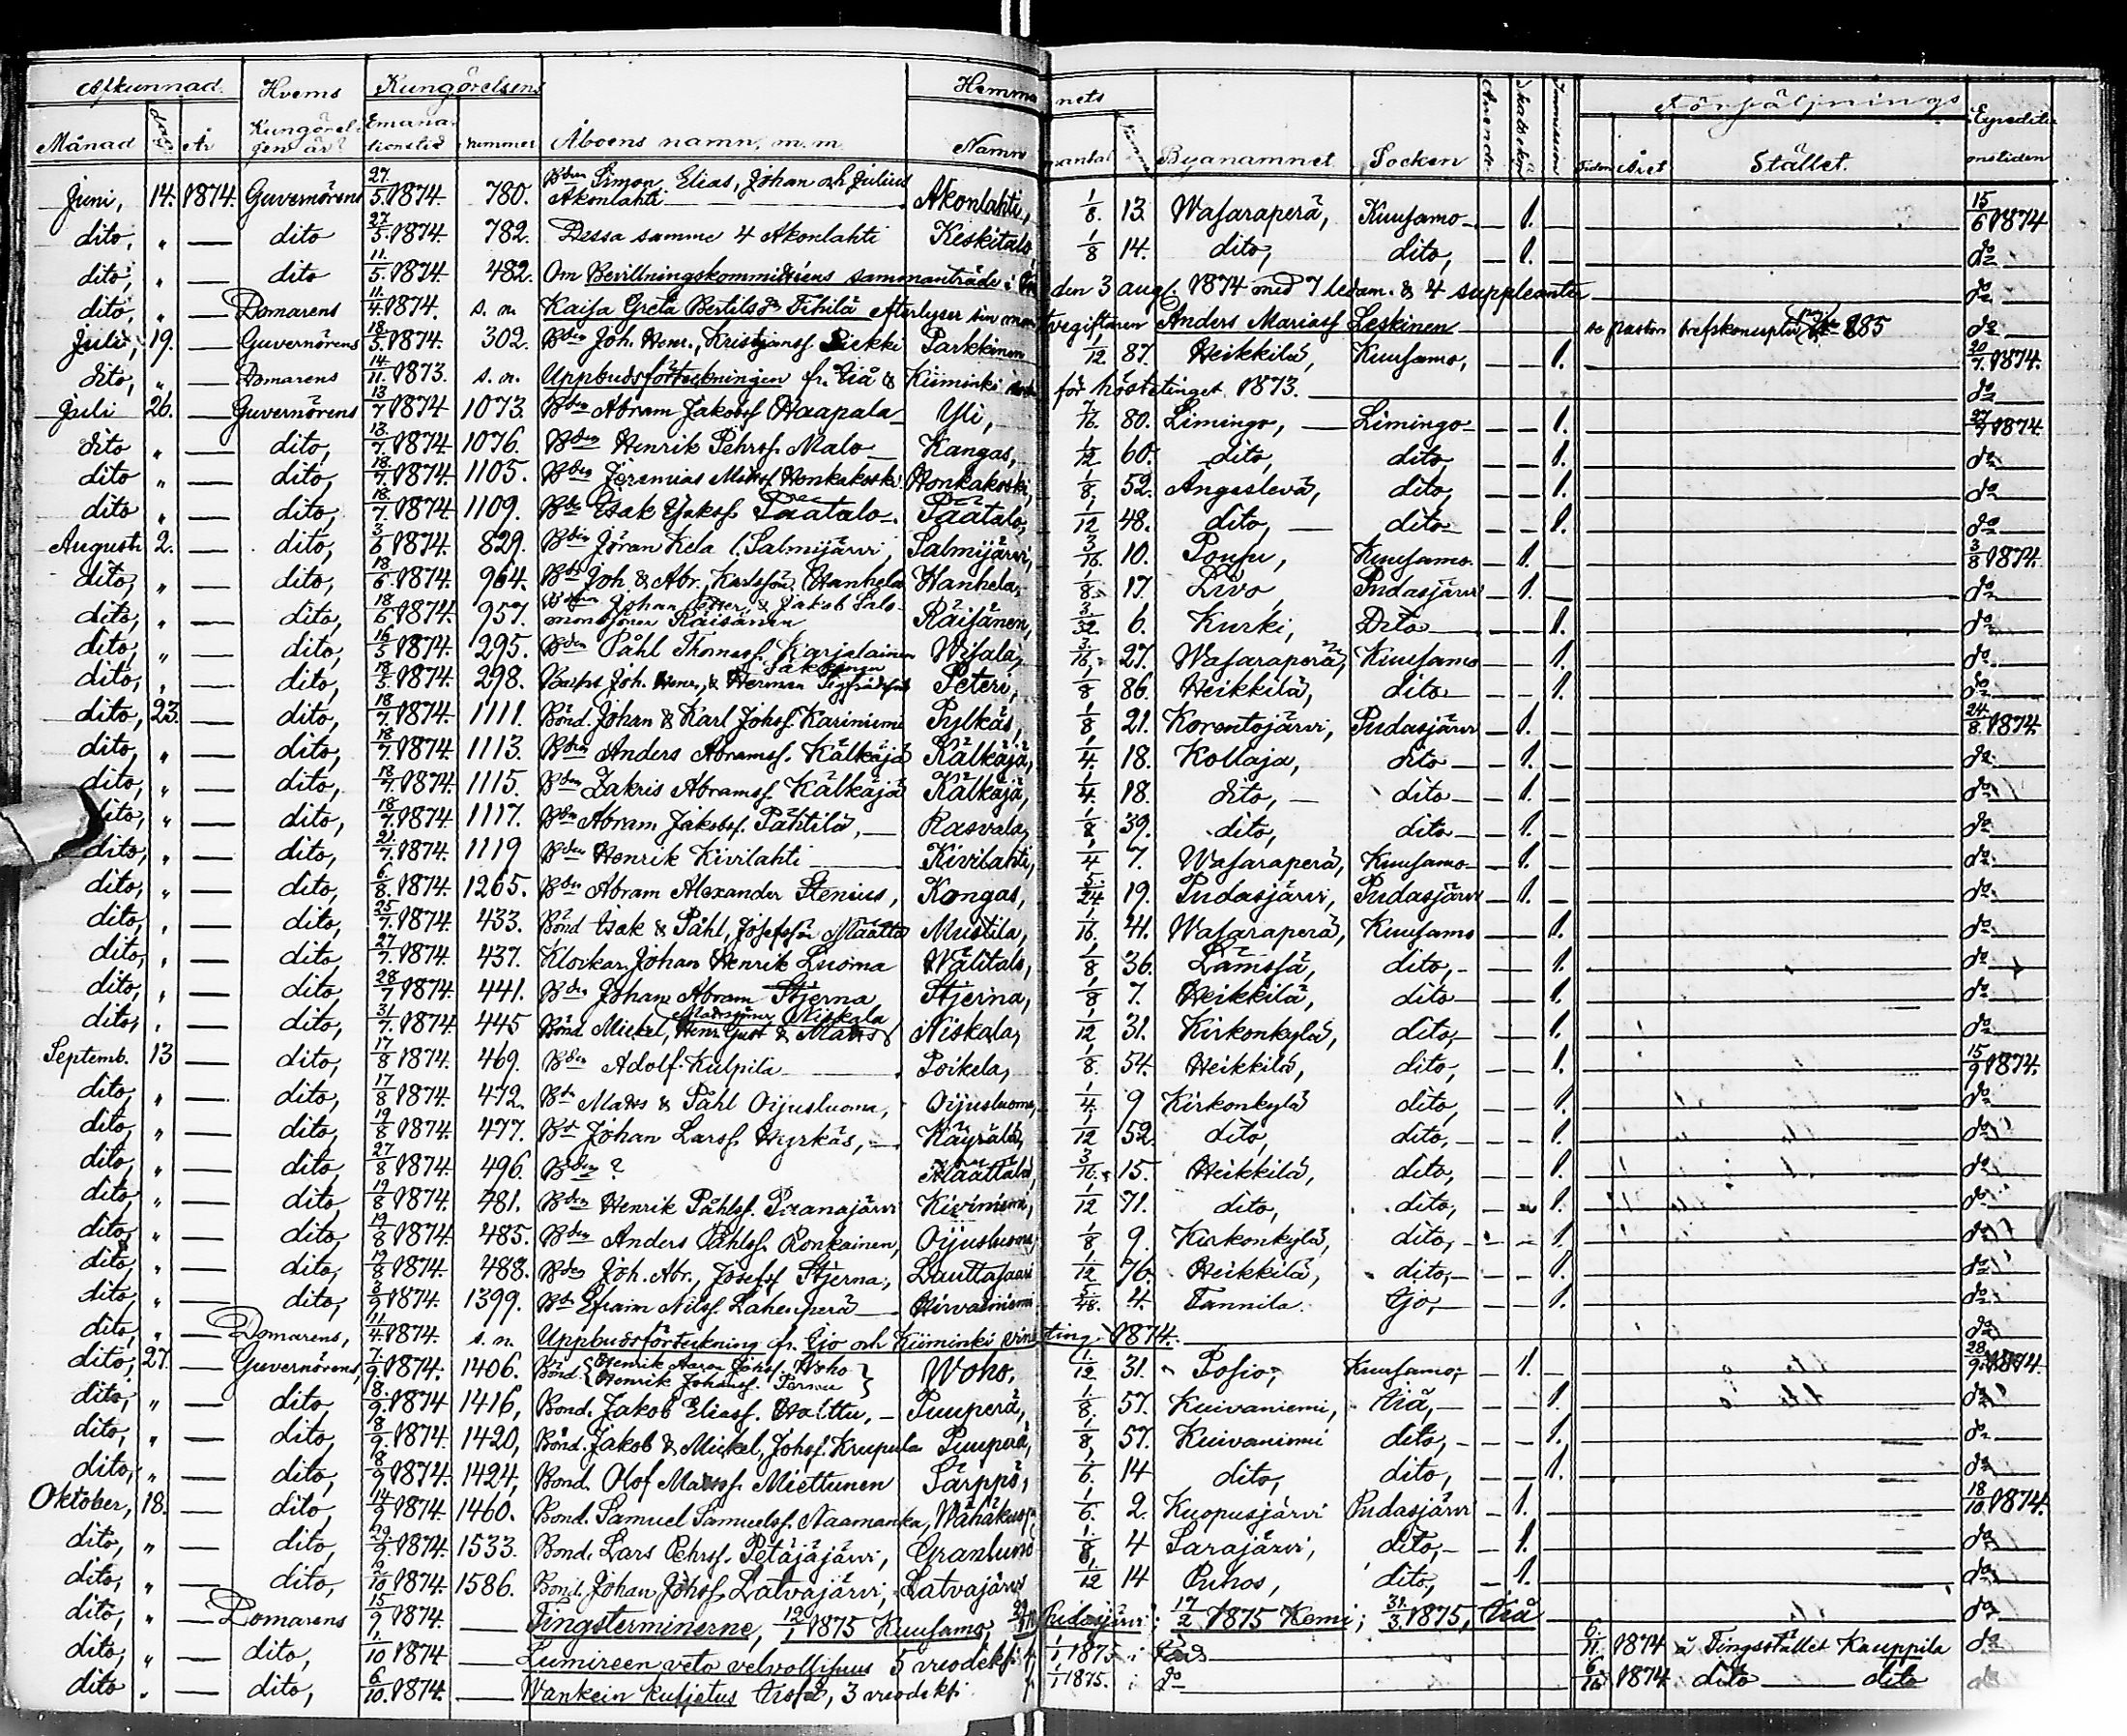 Afkunnad. Hvems Kungörelsens Hemmanets Försäljnings Expeditionstiden
Månad dag År Kungörelsen är? Emanationstid nummer Åboens namn, m. m. Namn mantal Byanamnet Socken Arende Skatteköp Immission Tiden Året Stället.
Juni, 14. 1874. Guvernörens 27/5. 1874. 780. Bden Simon, Elias, Johan och Julius Akonlahti Akonlahti, 1/8. 13. Wasaraperä, Kuusamo 1. 15/6 1874
dito, " — dito 27/5. 1874. 782. Dessa samme 4 Akonlahti Keskitalo, 1/8 14. dito, dito, 1. do
dito, " — dito 11/5. 1874. 482. Om Bevillningskommittéens sammanträde i den 3 aug. 1874 med 7 ledam. & 4 suppleanter do
dito, " — Domarens 11/4. 1874. s. n. Kaisa Greta Bertilsdr Tihilä efterlyser sin Anders Mariasf. Leskinen do
Juli, 19. — Guvernörens 18/5. 1874. 302. Bden Joh. Henr., Kristjansf. Parkkinen 1/12 87. Heikkilä, Kuusamo, 1. 20/7. 1874.
dito, " — Domarens 14/11. 1873. s. n. Uppbudsförteckningen fr. Iiå & Kiiminki för hösttinget 1873. do
Juli 26. — Guvernörens 13/7 1874 1073. Bden Abram Jakobsf. Haapala Yli, 7/16. 80. Limingo, Limingo 1. 27/7 1874
dito " — dito, 18/7. 1874 1076. Bden Henrik Pehrsf. Malo Kangas, 1/12 60. dito, dito 1. do
dito " — dito, 18/7. 1874 1105. Bden Jeremias Matsf. Honkakoski Honkakoski, 1/8 52. Angeslevä, dito, 1. do
dito " — dito, 18/7. 1874 1109. Bde Esak Esaksf. Päätalo Päätalo, 1/12 48. dito, dito 1. do
Augusti 2. — dito, 3/6 1874. 829. Bden Jöran Kela l. Salmijärvi, Salmijärvi, 3/16. 10. Pousu, Kuusamo 1. 3/8 1874.
dito, " — dito, 18/6 1874. 964. Bde Joh & Abr., Karlssön. Hanhela Hanhela, 1/8. 17. Livo Pudasjärvi 1. do
dito, " — dito, 18/6 1874. 957. Johan Petter, & Jakob Salomonssöner Räisänen Räisänen, 3/32. 6. Kurki, Dito 1. do
dito, " — dito, 16/5 1874. 295. Bden Påhl Thomasf. Karjalainen Wisala, 3/16. 27. Wasaraperä, Kuusamo 1. do
dito, " — dito, 18/5. 1874. 298. Joh. Henr., & Herman Sigfridsf. Säkkinen Peteri, 1/8 86. Heikkilä, dito 1. do
dito, 23. — dito, 18/7. 1874 1111. Bönd. Johan & Karl Johsf. Kariniemi Pylkäs, 1/8 21. Korentojärvi, Pudasjärvi 1. 24/8. 1874.
dito, " — dito, 18/7. 1874. 1113. Bden Anders Abramsf. Kälkäjä Kälkäjä, 1/4. 18. Kollaja, dito 1. do
dito, " — dito, 18/7. 1874. 1115. Bden Zakris Abramsf. Kälkäjä Kälkäjä, 1/4. 18. dito, dito 1. do
dito, " — dito, 18/7. 1874. 1117. Bden Abram Jakobsf. Pähtilä, Rasvala, 1/8 39. dito, dito 1. do
dito, " — dito, 21/7. 1874. 1119 Bden Henrik Kivilahti Kivilahti, 1/4 7. Wasaraperä, Kuusamo 1. do
dito, " — dito, 6/8. 1874 1265. Bden Abram Alexander Stenius, Kongas, 5/24 19. Pudasjärvi, Pudasjärvi 1. do
dito, " — dito, 25/7. 1874. 433. Bönd Isak & Påhl, Josefssön Määttä Mustila, 1/16. 41. Wasaraperä, Kuusamo 1. do
dito, " — dito, 27/7. 1874 437. Klockar. Johan Henrik Luoma Wälitalo, 1/8 36. Lämssä, dito, 1. do
dito, " — dito 28/7 1874. 441. Bden Johan Abram Stjerna Stjerna, 1/8 7. Heikkilä, dito 1. do
dito, " — dito, 31/7. 1874 445 Bönd Mickel, Henr. Gust & Matts Mattssöner Niskala Niskala, 1/12 31. Kirkonkylä, dito, 1. do
Septemb. 13 — dito, 17/8 1874. 469. Bden Adolf Kulpila Poikela, 1/8. 54. Heikkilä, dito, 1. 15/9 1874.
dito, " — dito, 17/8 1874. 472. Bde Matts & Påhl Oijusluoma, Oijusluoma, 1/4 9 Kirkonkylä dito, 1. do
dito, " — dito, 19/8 1874. 477. Bd Johan Larsf. Hyrkäs, Käyrälä, 1/12 52. dito, dito, 1. do
dito, " — dito, 27/8 1874. 496. Bden ? Määttälä, 3/16. 15. Heikkilä, dito, 1. do
dito, " — dito, 19/8 1874. 481. Bden Henrik Påhlsf. Paanajärvi Kiviniemi, 1/12 71. dito, dito, 1. do
dito, " — dito, 19/8 1874. 485. Bden Anders Påhlsf. Ronkainen, Oijusluoma, 1/8 9. Kirkonkylä, dito, 1. do
dito, " — dito, 19/8 1874. 488. Bden Joh. Abr., Josefsf Stjerna, Lauttasaari 1/12 76. Heikkilä, dito, 1. do
dito, " — dito, 3/9 1874. 1399. Bde Efraim Nilsf. Lahenperä Hirvasniemi 5/48. 4. Tannila Ijo, 1. do
dito, " — Domarens, 11/4. 1874. s. n. Uppbudsförteckning fr. Ijo och Kiiminki vinterting 1874. do
dito, 27. — Guvernörens, 7/9. 1874. 1406. Bönd. Henrik Aaron Johsf. Woho Henrik Johansf. Pernu Woho, 1/12 31. Posio, Kuusamo, 1. 28/9. 1874.
dito, " — dito, 8/9. 1874 1416, Bond. Jakob Eliasf. Halttu, Puuperä, 1/8. 57. Kuivaniemi, Iiå, 1. do
dito, " — dito, 8/9. 1874. 1420, Bönd. Jakob & Mickel, Johsf. Krupula Puuperä, 1/8, 57. Kuivaniemi dito, 1. do
dito, " — dito, 8/9 1874. 1424, Bond. Olof Mattsf. Miettunen Särppö, 1/6. 14 dito, dito, 1. do
Oktober, 18. — dito, 14/9 1874. 1460. Bond. Samuel Samuelsf. Naamanka, 1/6. 2. Kuopusjärvi Pudasjärvi 1. 18/10. 1874.
dito, " — dito, 29/9. 1874. 1533. Bond. Lars Pehrsf. Petäjäjärvi, Granlund 1/8 4 Sarajärvi, dito, 1. do
dito, " — dito, 6/10 1874. 1586. Bond. Johan Johsf. Latvajärvi, Latvajärvi 1/12 14 Puhos, dito, 1. do
dito, " — Domarens 15/9. 1874. — Tingsterminerne, 1875 Kuusamo, Pudasjärvi; 17/2 1875 Kemi; 31/3. 1875, Iiå do
dito, " — dito, 1/10 1874 — 1/1 1875 i 6/11. 1874 å Tingsstället Kauppila do
dito " — dito, 6/10. 1874. — Wankein 1/1 1875. i do 1874 dito dito do